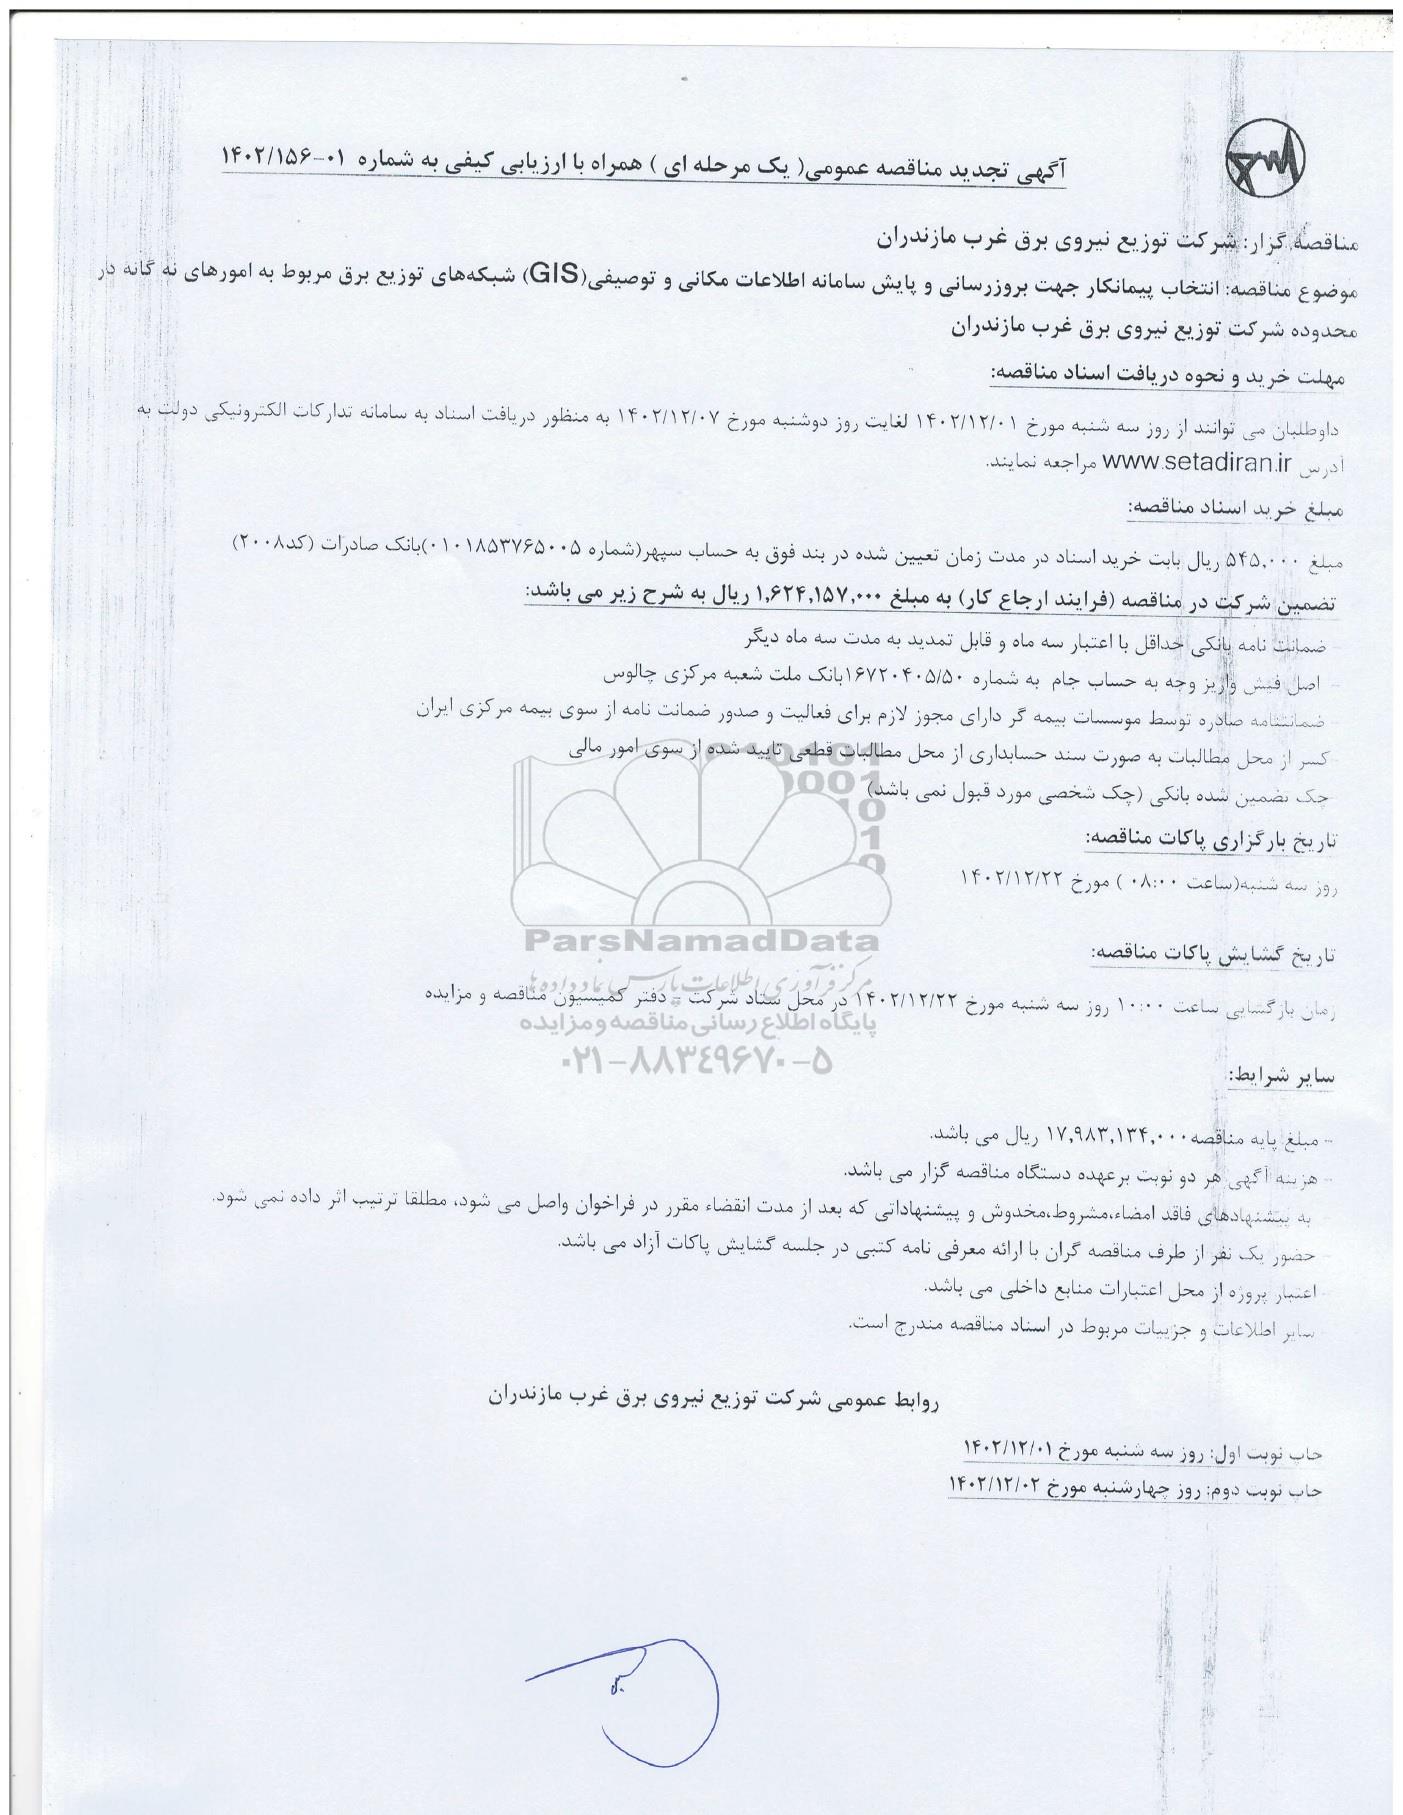 آگهی تجدید مناقصه عمومی( یک مرحله ای ) همراه با ارزیابی کیفی به شماره ۰۱-۱۴۰۲/۱۵۶
مناقصه گزار: شرکت توزیع نیروی برق غرب مازندران
موضوع مناقصه: انتخاب پیمانکار جهت بروزرسانی و پایش سامانه اطلاعات مکانی و توصیفی(GIS) شبکه‌های توزیع برق مربوط به امورهای نه گانه در
محدوده شرکت توزیع نیروی برق غرب مازندران
مهلت خرید و نحوه دریافت اسناد مناقصه:
داوطلبان می توانند از روز سه شنبه مورخ ۱۴۰۲/۱۲/۰۱ لغایت روز دوشنبه مورخ ۱۴۰۲/۱۲/۰۷ به منظور دریافت اسناد به سامانه تدارکات الکترونیکی دولت به
آدرس www.setadiran.ir مراجعه نمایند.
مبلغ خرید اسناد مناقصه:
مبلغ ۵۴۵,۰۰۰ ریال بابت خرید اسناد در مدت زمان تعیین شده در بند فوق به حساب سپهر(شماره ۰۱۰۱۸۵۳۷۶۵۰۰۵)بانک صادرات (کد۲۰۰۸)
تضمین شرکت در مناقصه (فرایند ارجاع کار) به مبلغ ۱,۶۲۴,۱۵۷,۰۰۰ ریال به شرح زیر می باشد:
- ضمانت نامه بانکی حداقل با اعتبار سه ماه و قابل تمدید به مدت سه ماه دیگر
- اصل فیش واریز وجه به حساب جام به شماره ۱۶۷۲۰۴۰۵/۵۰بانک ملت شعبه مرکزی چالوس
- ضمانتنامه صادره توسط موسسات بیمه گر دارای مجوز لازم برای فعالیت و صدور ضمانت نامه از سوی بیمه مرکزی ایران
- کسر از محل مطالبات به صورت سند حسابداری از محل مطالبات قطعی تایید شده از سوی امور مالی
- چک تضمین شده بانکی (چک شخصی مورد قبول نمی باشد)
تاریخ بارگزاری پاکات مناقصه:
روز سه شنبه(ساعت ۰۸:۰۰ ) مورخ ۱۴۰۲/۱۲/۲۲
ParsNamadData
تاریخ گشایش پاکات مناقصه:
مرکز فرآوری اطلاعات پارس نماد داده ها
زمان بازگشایی ساعت ۱۰:۰۰ روز سه شنبه مورخ ۱۴۰۲/۱۲/۲۲ در محل ستاد شرکت – دفتر کمیسیون مناقصه و مزایده
پایگاه اطلاع رسانی مناقصه و مزایده
۰۲۱-۸۸۳۴۹۶۷۰-۵
سایر شرایط:
- مبلغ پایه مناقصه۱۷,۹۸۳,۱۳۴,۰۰۰ ریال می باشد.
- هزینه آگهی هر دو نوبت برعهده دستگاه مناقصه گزار می باشد.
- به پیشنهادهای فاقد امضاء،مشروط،مخدوش و پیشنهاداتی که بعد از مدت انقضاء مقرر در فراخوان واصل می شود، مطلقا ترتیب اثر داده نمی شود.
- حضور یک نفر از طرف مناقصه گران با ارائه معرفی نامه کتبی در جلسه گشایش پاکات آزاد می باشد.
- اعتبار پروژه از محل اعتبارات منابع داخلی می باشد.
- سایر اطلاعات و جزییات مربوط در اسناد مناقصه مندرج است.
روابط عمومی شرکت توزیع نیروی برق غرب مازندران
چاپ نوبت اول: روز سه شنبه مورخ ۱۴۰۲/۱۲/۰۱
چاپ نوبت دوم: روز چهارشنبه مورخ ۱۴۰۲/۱۲/۰۲